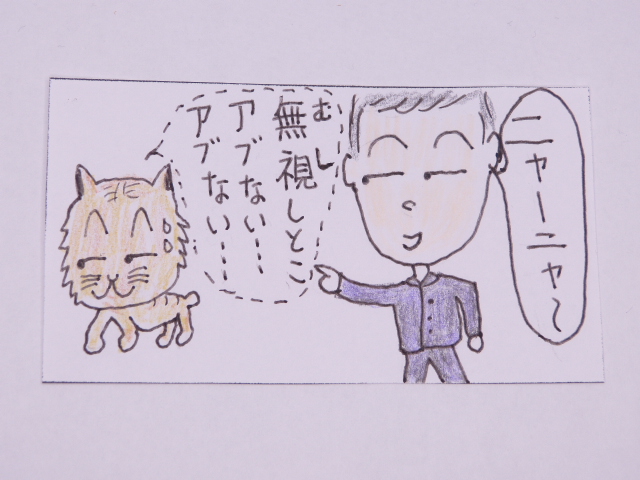 ニャーニャ〜
無視しとこ
むし
アブない…
アブない…